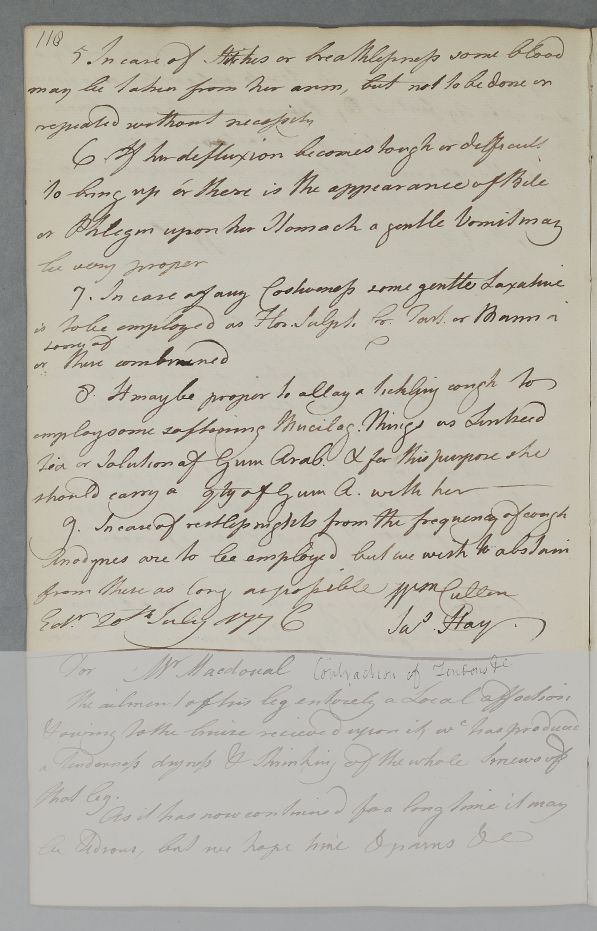 118
5 In case of Stitches or breathlessness some blood
may be taken from her arm, but not to be done or
repeated without necessity
6. If her defluxion becomes tough or difficult
to bring up or there is the appearance of Bile
or Phlegm upon her Stomach a gentle Vomit may
be very proper
7. In case of any Costiveness some gentle Laxative
is to be employed as Flor. Sulph. Cr. Tart. or Manna
some of
or these combined
8. It may be proper to allay a tickling cough to
employ some softening Mucilag. things as Linseed
Tea or Solution of Gum Arab. & for this purpose she
should carry a qty of Gum A. with her
9. In case of restless nights from the frequency of cough
Anodynes are to be employed but we wish to abstain
from these as long as possible Wm Cullen
Edr. 20th July 1776 Jas Hay.
For Mr Macdoual Contraction of Tendons &c
The ailment of his leg entirely a Local affection
& owing to the bruise recieved upon it, wc has produced
a Tenderness dryness & Shrinking of the whole Sinews of
that leg.
As it has now continued for a long time it may
be tedious, but we hope time & pains &c